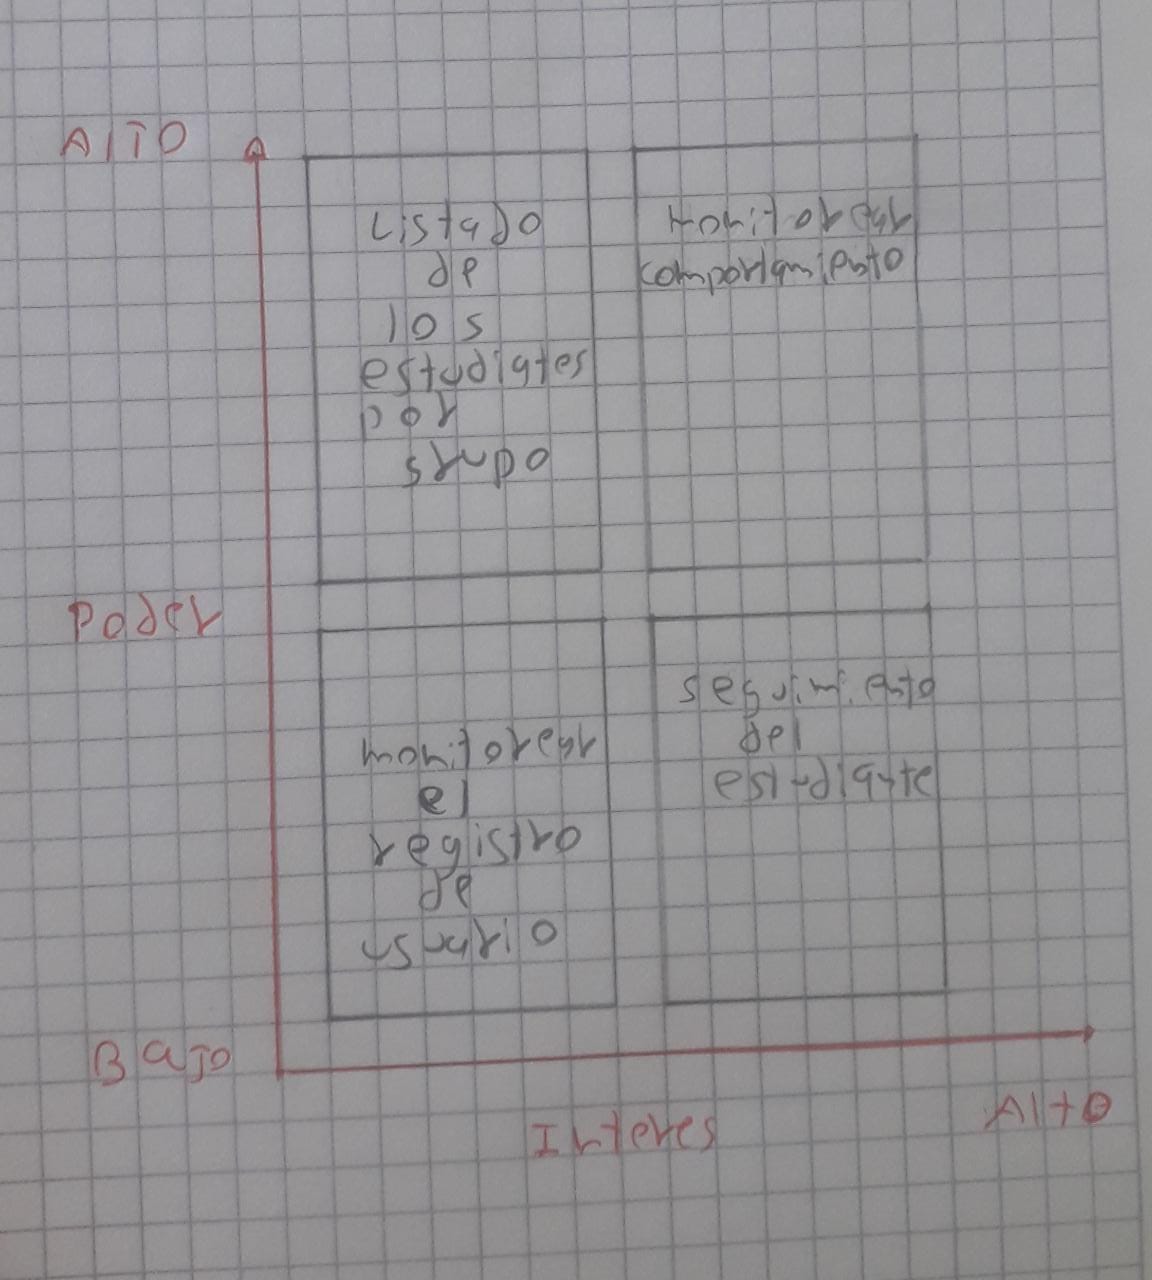 AlTO
Listado
de
los
estudiates
por
grupo
Monitorear
comportamiento
Poder
monitorear
el
registro
de
usuario
seguimiento
del
estudiante
BaJo
Interes
Alto